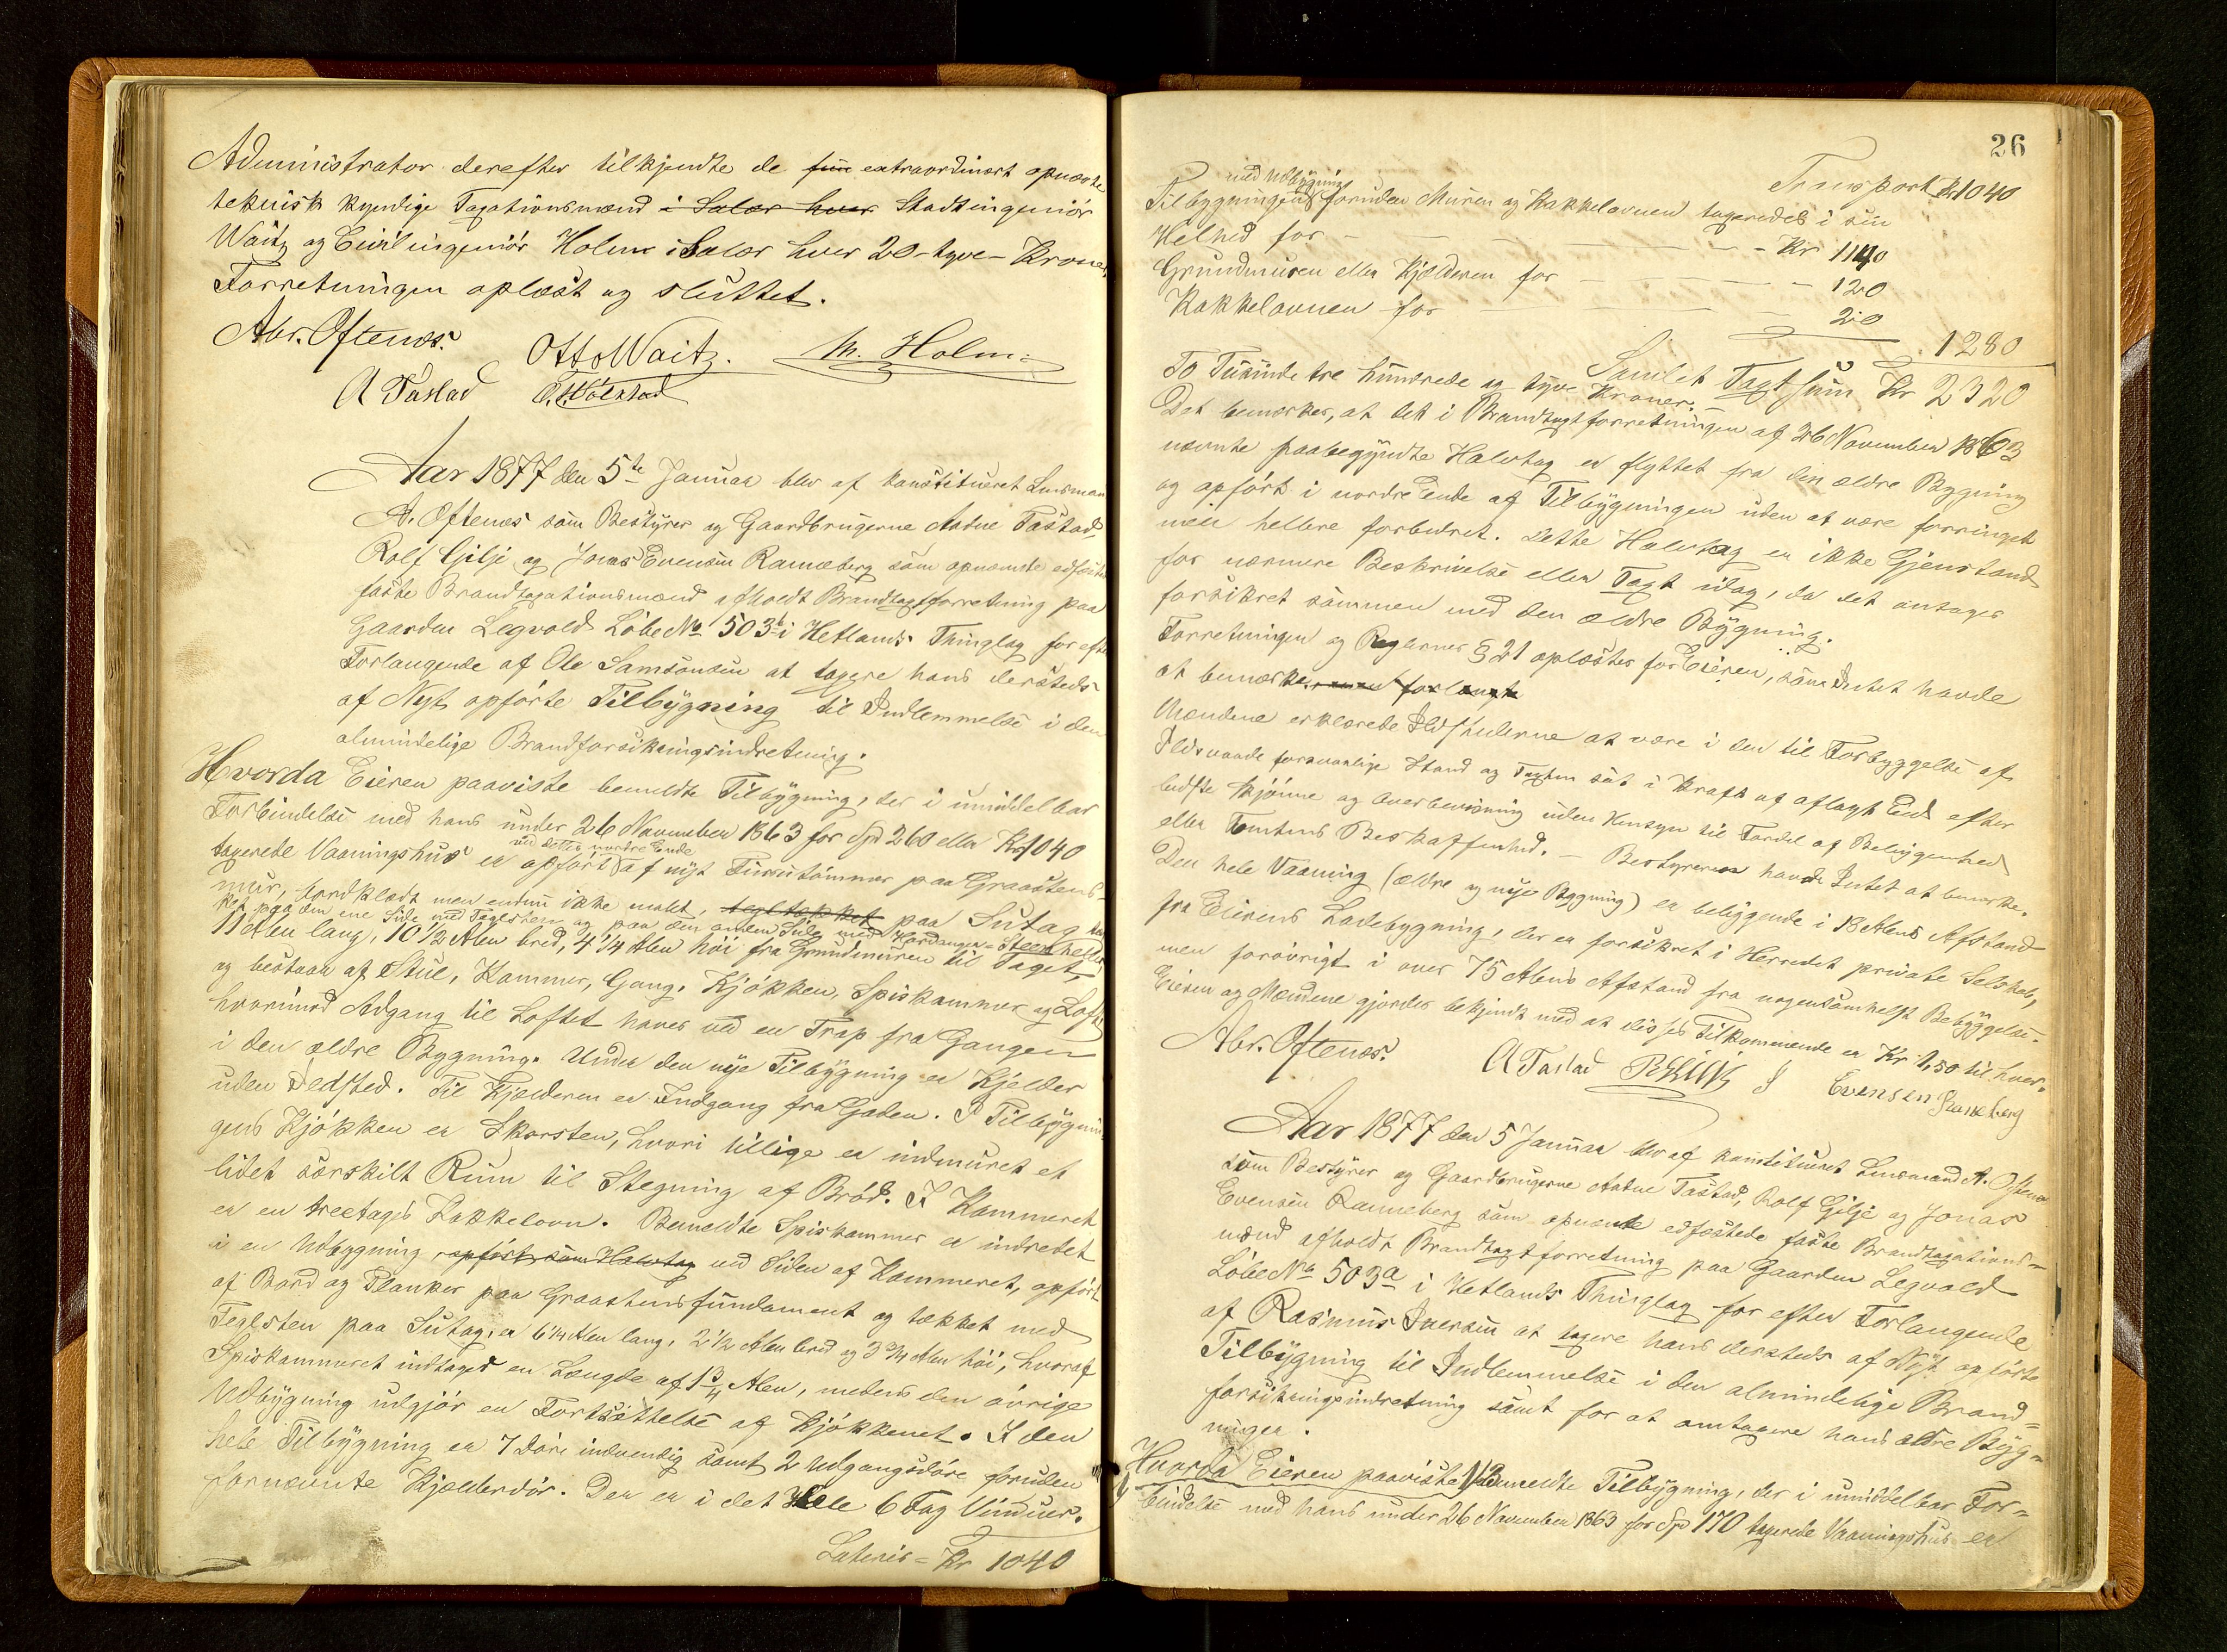 Administrator derefter tilkjendte de fum extraordinært opnævnte
teknisk kyndige Taxationsmænd i Salær hver Stadtsingeniør
Waitz og Civilingeniør Holm i Salær hver 20 - tyve - Kroner.
Forretningen oplæst og sluttet.
Abr. Oftenæs. Otto Waitz. M. Holm
A Tastad
Aar 1877 den 5te Januar blev af konstitueret Lensmand
A. Oftenæs som Bestyrer og Gaardbrugerne Aadne Tastad,
Rolf Gilje og Jonas Evensen Ranneberg som opnævnte edfæstede
faste Brandtaxationsmænd afholdt Brandtaxtforretning paa
Gaarden Legvold Løbe No 503b i Hetlands Thinglag for efter
Forlangende af Ole Samsonsen at taxere hans dersteds
af Nyt opførte Tilbygning til Indlemmelse i den
almindelige Brandforsikringsindretning.
Hvorda Eieren paaviste bemeldte Tilbygning, der i umiddelbar
Forbindelse med hans under 26 November 1863 for Spd 260 eller Kr 1040
taxerede Vaaningshus er opført ved dettes nordre Ende af nyt Furutømmer paa Graastens-
mur, bordklædt men endnu ikke malet, tegltækket paa Sutag tæk
ket paa den ene Side med Teglsten og paa den anden Side med Hardanger-Steenheller
11 Alen lang, 10 1/2 Alen bred, 4 1/4 Alen høi fra Grundmuren til Taget,
og bestaar af Stue, Kammer, Gang, Kjøkken, Spiskammer og Loft,
hvorimod Adgang til Loftet haves ved en Trap fra Gangen
i den ældre Bygning. Under den nye Tilbygning er Kjelder
uden Ildsted. Til Kjælderen er Indgang fra Gaden. I Tilbygnin
gens Kjøkken er Skorsten, hvori tillige er indmuret et
lidet særskilt Rum til Stegning af Brød. I Kammeret
er en treetages Kakkelovn. Bemeldte Spiskammer er indredet
i en Udbygning, opført som Halvtag ved Siden af Kammeret, opført
af Bord og Planker paa Graastensfundament og tækket med
Teglsten paa Sutag, er 6 1/4 Alen lang, 2 1/2 Alen bred og 3 3/4 Alen høi, hvoraf
Spiskammeret indtager en Længde af 1 3/4 Alen, medens den øvrige
Udbygning udgjør en Fortsættelse af Kjøkkenet. I den
hele Tilbygning er 7 Døre indvendig samt 2 Udgangsdøre foruden
fornævnte Kjælderdør. Der er i det Hele 6 Fag Vinduer.
Lateris = Kr 1040
26
Transport Kr 1040
Tilbygningen med Udbygning foruden Muren og Kakkelovnen taxeredes i sin
Helhed for - Kr 1140
Grundmuren eller Kjælderen for - 120
Kakkelovnen for - 20
1280
Samlet Taxtsum Kr 2320
To Tusinde tre hundrede og tyve Kroner.
Det bemærkes, at det i Brandtaxtforretningen af 26 November 1863
nævnte paabegyndte Halvtag er flyttet fra den ældre Bygning
og opført i nordre Ende af Tilbygningen uden at være forringet
men hellere forbedret. Dette Halvtag er ikke Gjenstand
for nærmere Beskrivelse eller Taxt idag, da det antages
forsikret sammen med den ældre Bygning.
Forretningen og Reglernes § 21 oplæstes for Eieren, som Intet havde
at bemærke, men forlangte
Mændene erklærede Ildstederne at være i den til Forbyggelse af
Ildsvaade forsvarlige Stand og Taxten sat i Kraft af aflagt Eed efter
bedste Skjønne og Overbevisning uden Hensyn til Fordel af Beliggenhed
eller Tomtens Beskaffenhed. - Bestyreren havde Intet at bemærke.
Den hele Vaaning (ældre og nye Bygning) er beliggende i 18 Alens Afstand
fra Eierens Ladebygning, der er forsikret i Herredet private Selskab,
men forøvrigt i over 75 Alens Afstand fra nogensomhelst Bebyggelse.
Eieren og Mændene gjordes bekjendt med at disses Tilkommende er Kr 1,50 til hver.
Abr. Oftenæs. A Tastad R Gilje J Evensen Ranneberg
Aar 1877 den 5 Januar blev af konstitueret Lensmand A. Oftenæs
som Bestyrer og Gaardbrugerne Aadne Tastad, Rolf Gilje og Jonas
Evensen Ranneberg som opnævnte edfæstede faste Brandtaxations=
mænd afholdt Brandtaxtforretning paa Gaarden Legvold
Løbe No 503a i Hetlands Thinglag for efter Forlangende
af Rasmus Iversen at taxere hans dersteds af Nyt opførte
Tilbygning til Indlemmelse i den almindelige Brand=
forsikringsindretning samt for at omtaxere hans ældre Byg=
ninger.
Hvorda Eieren paaviste 1/ Bemeldte Tilbygning, der i umiddelbar For=
bindelse med hans under 26 November 1863 for Spd 170 taxerede Vaaningshus er